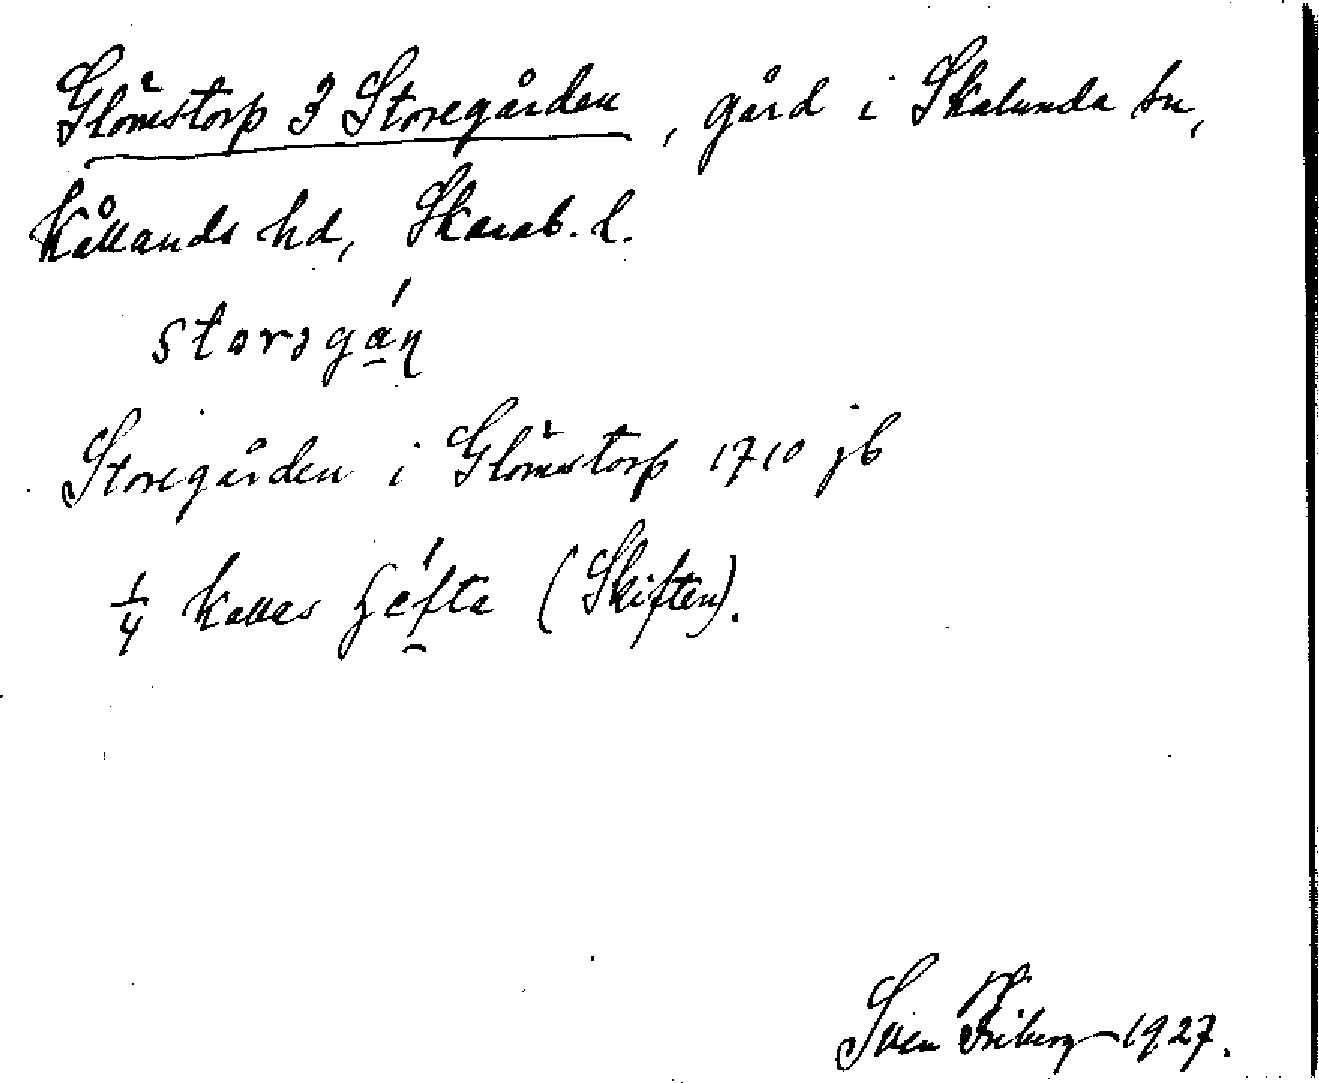 Glömstorp 3 Storegården, gård i Skalunda sn,
Kållands hd, Skarab. l.
storəgán
Storegården i Glömstorp 1710 jb
1/4 kallas (Skiften).
Sven Friberg 1927.